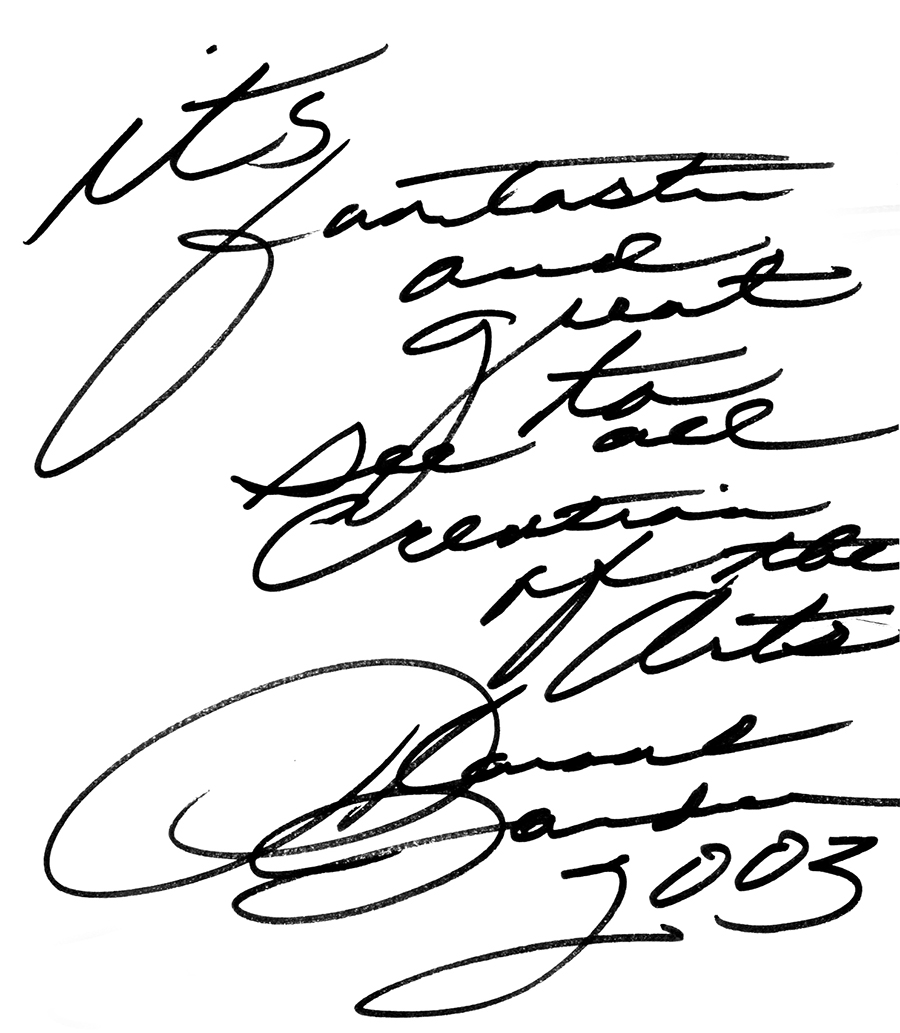 its
fantastic
and
great
to
see all
Creation
of the
Arts
2003